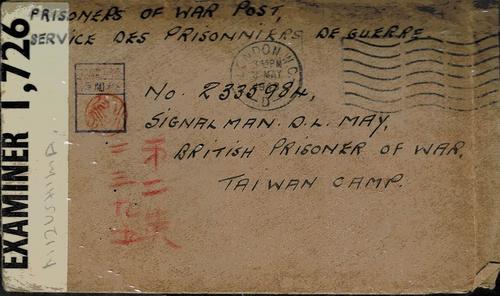 PRISONERS OF WAR POST,
SERVICE DES PRISONNIERS DE GUERRE.
EXAMINER 1,726
LONDON W.C.
MAY
No. 2335984,
SIGNALMAN. D.L. MAY,
BRITISH PRISONER OF WAR,
TAIWAN CAMP.